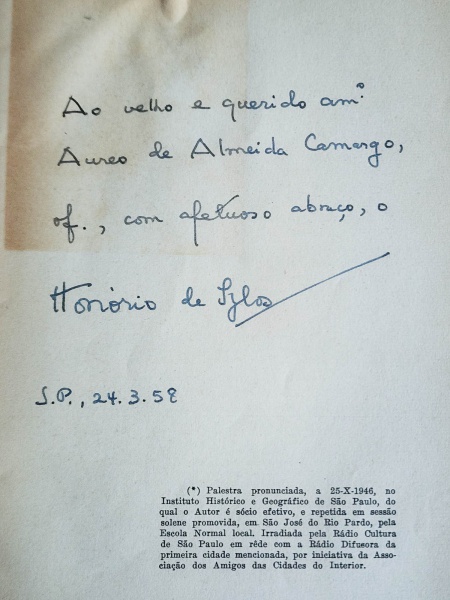 Ao velho e querido am.º
Aureo de Almeida Camargo,
of., com afetuoso abraço, o
Honório de Sylos
S.P., 24.3.58
(*) Palestra pronunciada, a 25-X-1946, no
Instituto Histórico e Geográfico de São Paulo, do
qual o Autor é sócio efetivo, e repetida em sessão
solene promovida, em São José do Rio Pardo, pela
Escola Normal local. Irradiada pela Rádio Cultura
de São Paulo em rêde com a Rádio Difusora da
primeira cidade mencionada, por iniciativa da Asso-
ciação dos Amigos das Cidades do Interior.